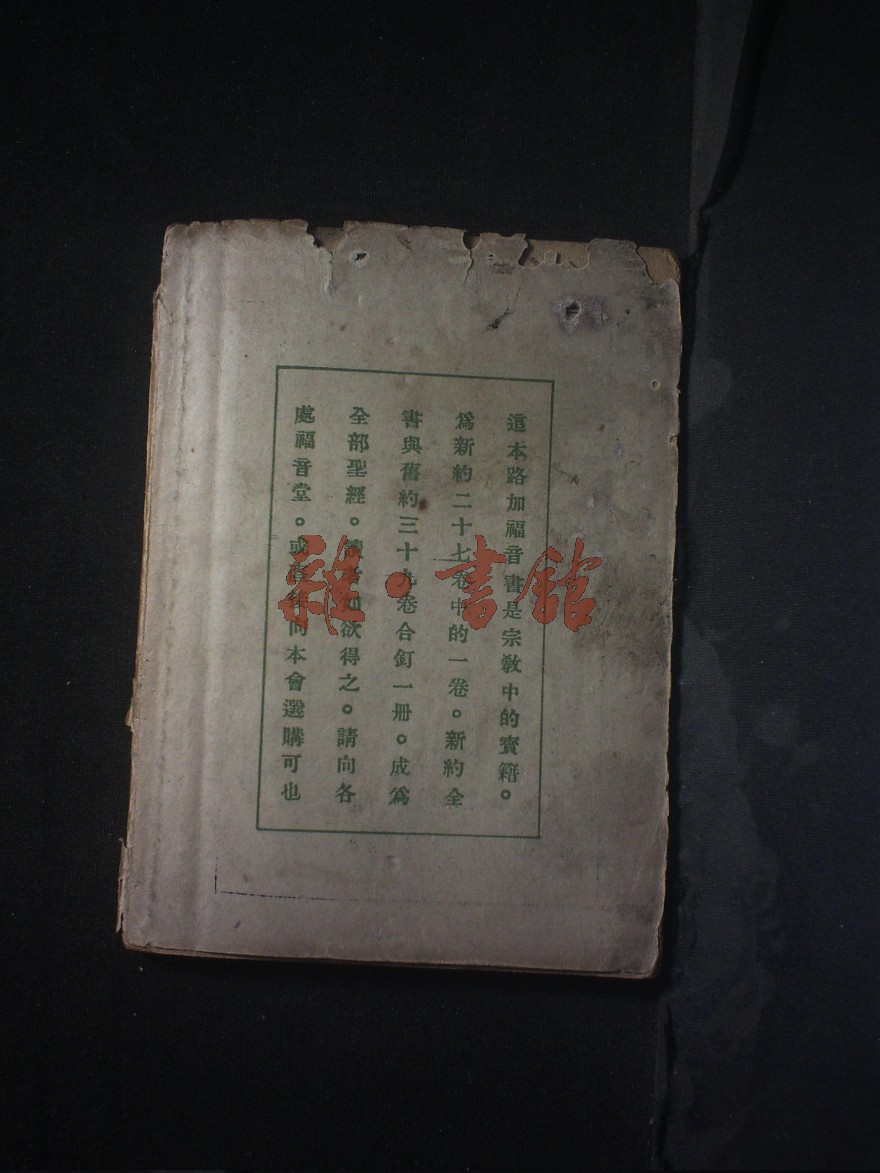 這本路加福音書是宗教中的寶籍。
為新約二十七卷中的一卷。新約全
書與舊約三十九卷合釘一冊。成為
全部聖經。讀者如欲得之。請向各
處福音堂。或向本會選購可也
雜·書館